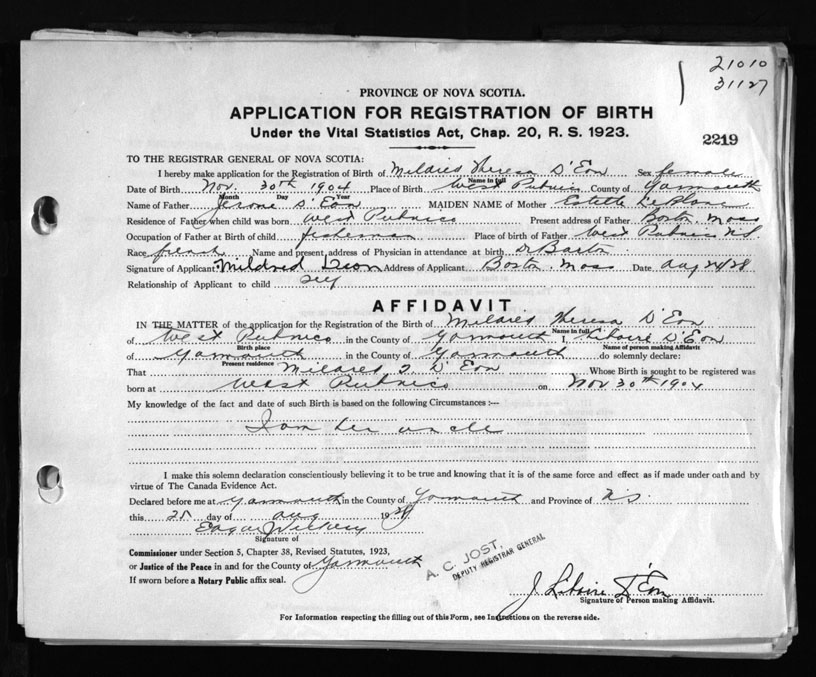 21010
31127
PROVINCE OF NOVA SCOTIA.
APPLICATION FOR REGISTRATION OF BIRTH
Under the Vital Statistics Act, Chap. 20, R. S. 1923.
2219
TO THE REGISTRAR GENERAL OF NOVA SCOTIA:
I hereby make application for the Registration of Birth of Mildred Theresa D'Eon Sex female
Name in full
Date of Birth Nov. 30th 1904 Place of Birth West Pubnico County of Yarmouth
Month Day Year
Name of Father Jerome D'Eon MAIDEN NAME of Mother Estelle
Residence of Father when child was born West Pubnico Present address of Father Boston Mass
Occupation of Father at Birth of child fisherman Place of birth of Father West Pubnico N.S.
Race french Name and present address of Physician in attendance at birth Dr
Signature of Applicant Mildred Deon Address of Applicant Boston Mass Date Aug 24/28
Relationship of Applicant to child self
AFFIDAVIT
IN THE MATTER of the application for the Registration of the Birth of Mildred Theresa D'Eon
Name in full
of West Pubnico in the County of Yarmouth I, D'Eon
Birth place Name of person making Affidavit
of Yarmouth in the County of Yarmouth do solemnly declare:
Present residence
That Mildred T. D'Eon Whose Birth is sought to be registered was
born at West Pubnico on Nov 30th 1904
My knowledge of the fact and date of such Birth is based on the following Circumstances :—
I am her uncle
I make this solemn declaration conscientiously believing it to be true and knowing that it is of the same force and effect as if made under oath and by
virtue of The Canada Evidence Act.
Declared before me at Yarmouth in the County of Yarmouth and Province of N.S.
this 25 day of Aug 1928
Edgar
Signature of
Commissioner under Section 5, Chapter 38, Revised Statutes, 1923,
or Justice of the Peace in and for the County of Yarmouth
If sworn before a Notary Public affix seal.
A. C. JOST,
DEPUTY REGISTRAR GENERAL
J. D'Eon
Signature of Person making Affidavit.
For Information respecting the filling out of this Form, see Instructions on the reverse side.